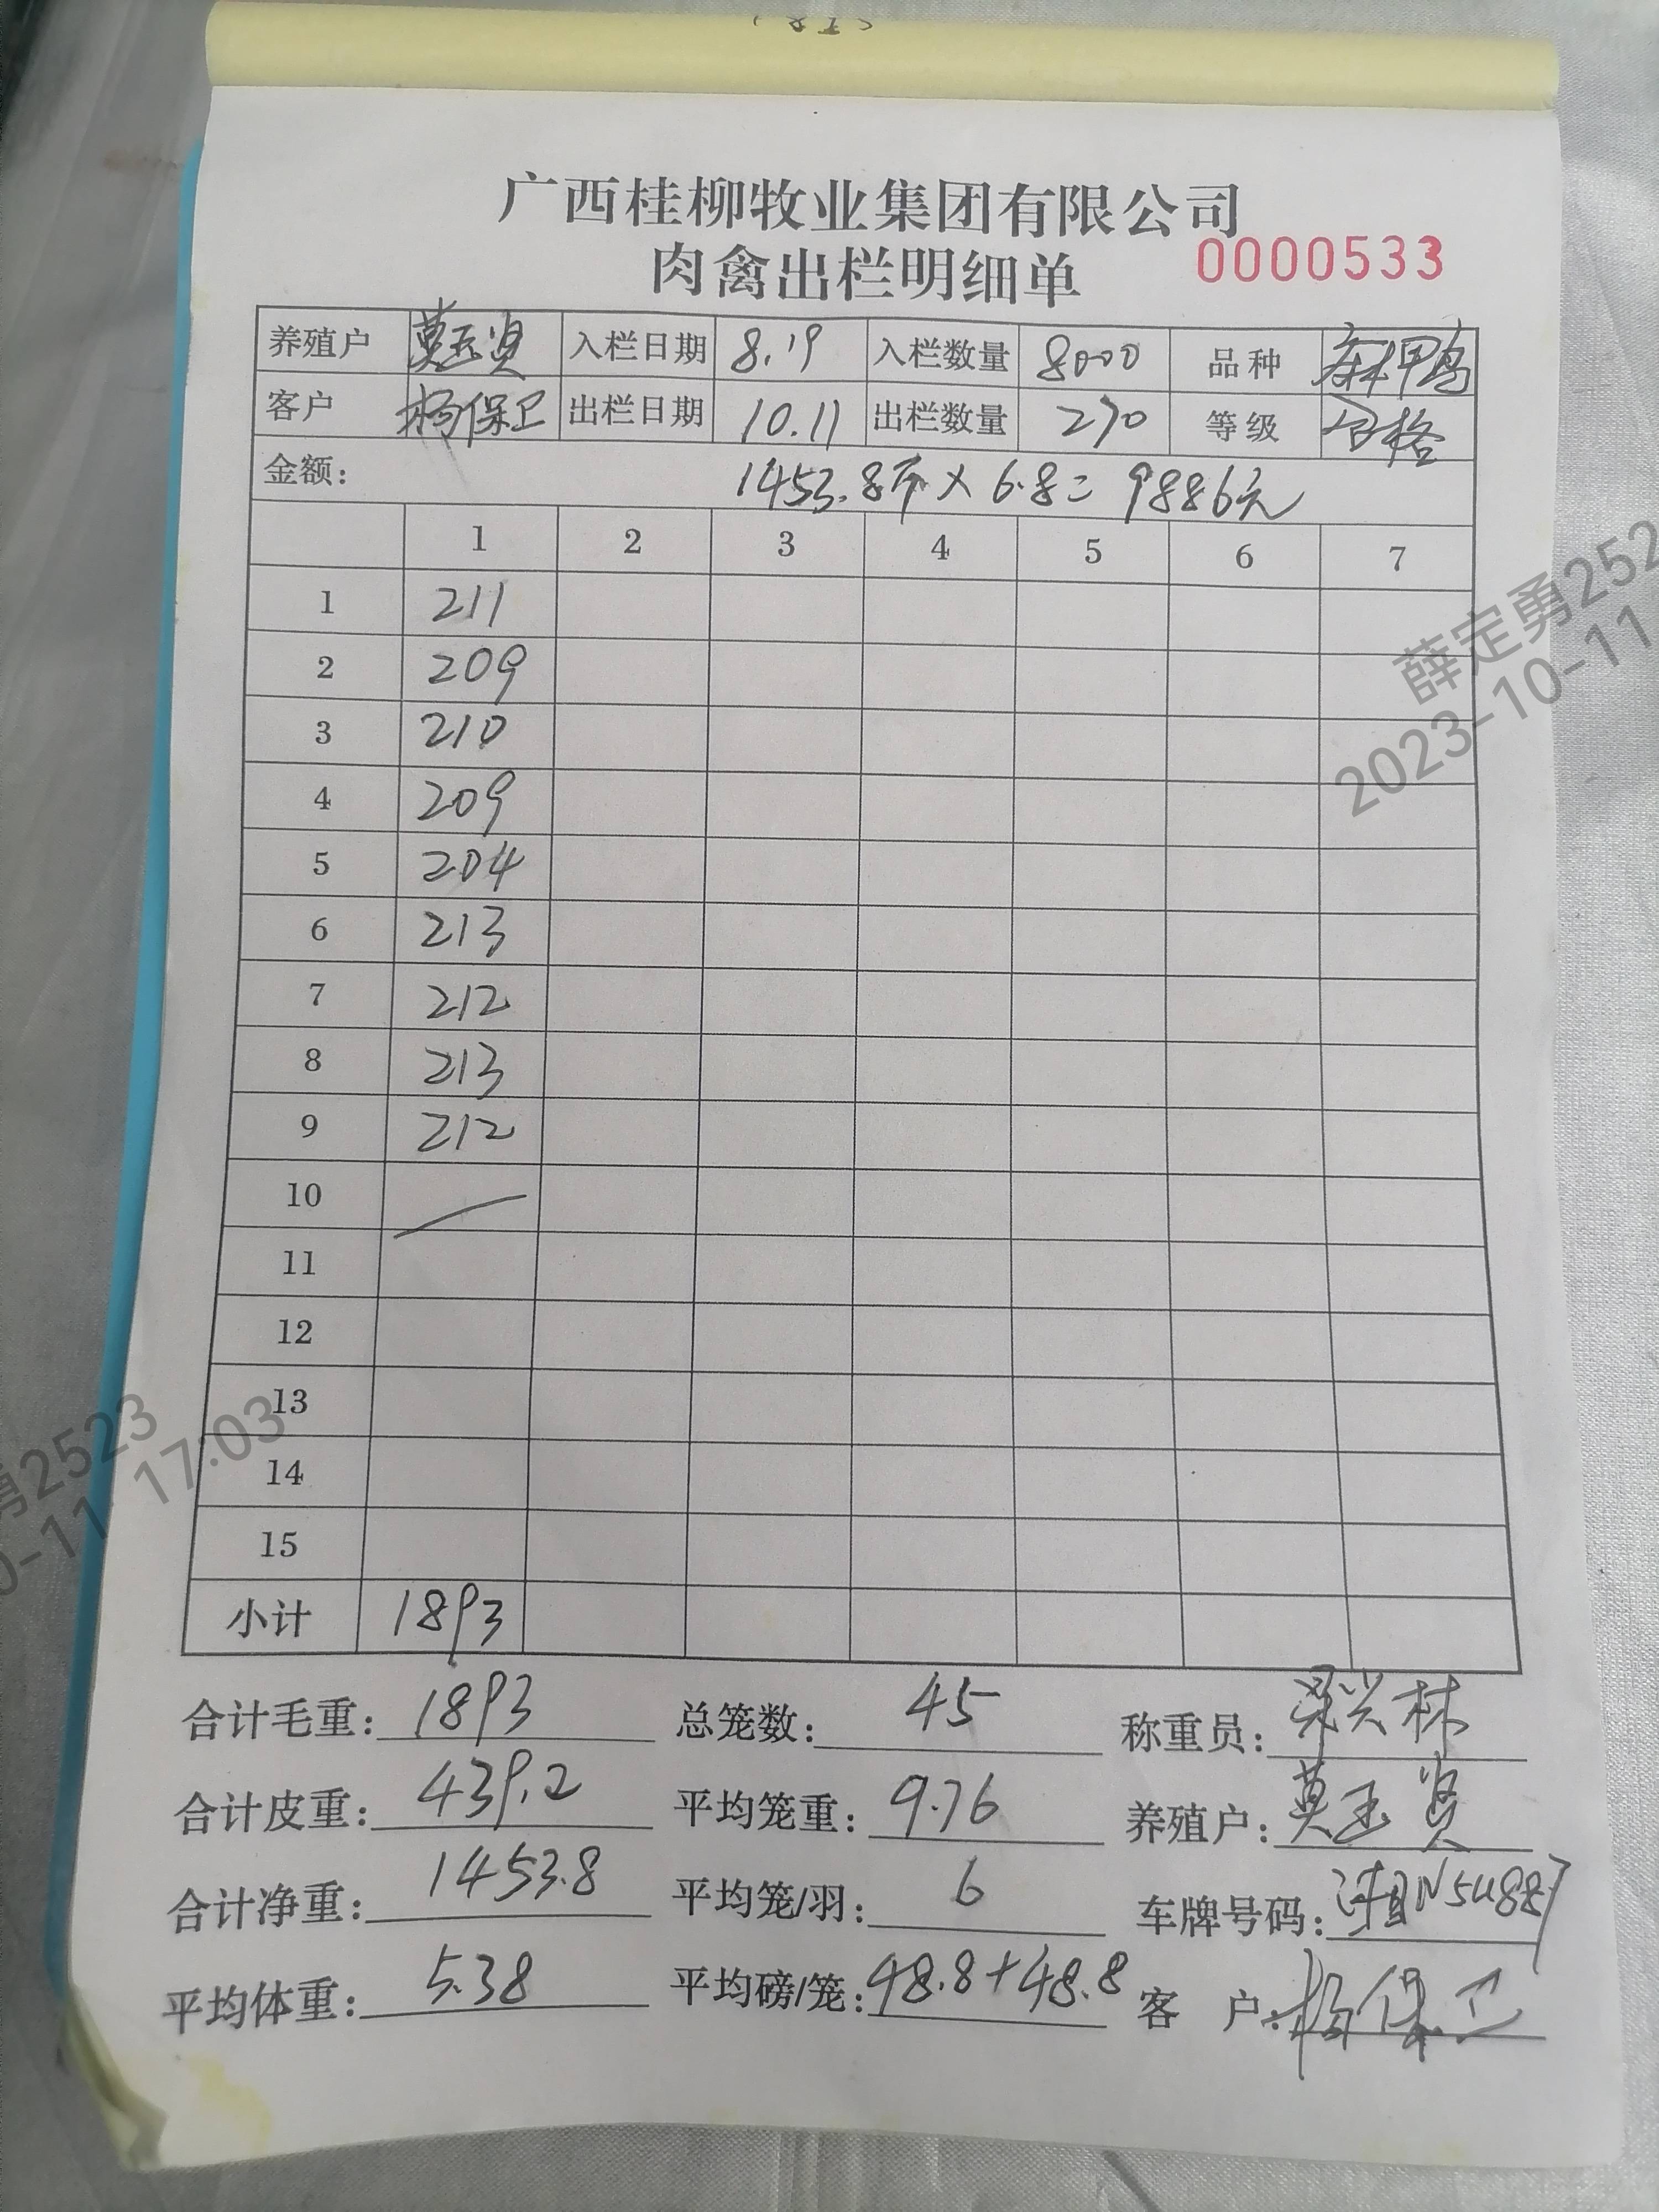 广西桂柳牧业集团有限公司
肉禽出栏明细单 0000533
养殖户 莫玉贤 入栏日期 8.19 入栏数量 8000 品种 麻鸭
客户 杨保卫 出栏日期 10.11 出栏数量 270 等级 合格
金额: 1453.8斤×6.8=9886元
1 2 3 4 5 6 7
1 211
2 209
3 210
4 209
5 204
6 213
7 212
8 213
9 212
10
11
12
13
14
15
小计 1893
合计毛重: 1893 总笼数: 45 称重员: 梁兴林
合计皮重: 439.2 平均笼重: 9.76 养殖户: 莫玉贤
合计净重: 1453.8 平均笼/羽: 6 车牌号码:
平均体重: 5.38 平均磅/笼: 48.8+48.8 客户: 杨保卫
薛定勇252
2023-10-11
勇2523
0-11 17:03